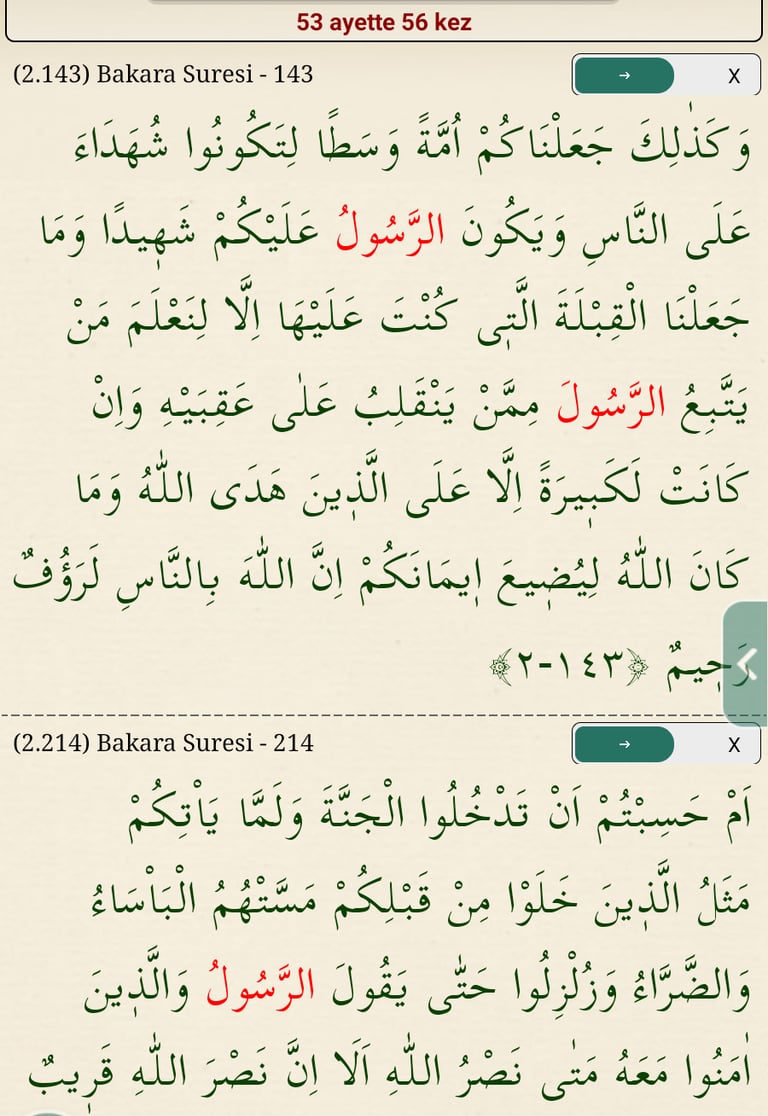 53 ayette 56 kez
(2.143) Bakara Suresi - 143
→ X
وَكَذٰلِكَ جَعَلْنَاكُمْ اُمَّةً وَسَطًا لِتَكُونُوا شُهَدَاءَ
عَلَى النَّاسِ وَيَكُونَ الرَّسُولُ عَلَيْكُمْ شَهٖيدًا وَمَا
جَعَلْنَا الْقِبْلَةَ الَّتٖى كُنْتَ عَلَيْهَا اِلَّا لِنَعْلَمَ مَنْ
يَتَّبِعُ الرَّسُولَ مِمَّنْ يَنْقَلِبُ عَلٰى عَقِبَيْهِ وَاِنْ
كَانَتْ لَكَبٖيرَةً اِلَّا عَلَى الَّذٖينَ هَدَى اللّٰهُ وَمَا
كَانَ اللّٰهُ لِيُضٖيعَ اٖيمَانَكُمْ اِنَّ اللّٰهَ بِالنَّاسِ لَرَؤُفٌ
رَحٖيمٌ ﴿٢-١٤٣﴾
(2.214) Bakara Suresi - 214
→ X
اَمْ حَسِبْتُمْ اَنْ تَدْخُلُوا الْجَنَّةَ وَلَمَّا يَاْتِكُمْ
مَثَلُ الَّذٖينَ خَلَوْا مِنْ قَبْلِكُمْ مَسَّتْهُمُ الْبَاْسَاءُ
وَالضَّرَّاءُ وَزُلْزِلُوا حَتّٰى يَقُولَ الرَّسُولُ وَالَّذٖينَ
اٰمَنُوا مَعَهُ مَتٰى نَصْرُ اللّٰهِ اَلَا اِنَّ نَصْرَ اللّٰهِ قَرٖيبٌ